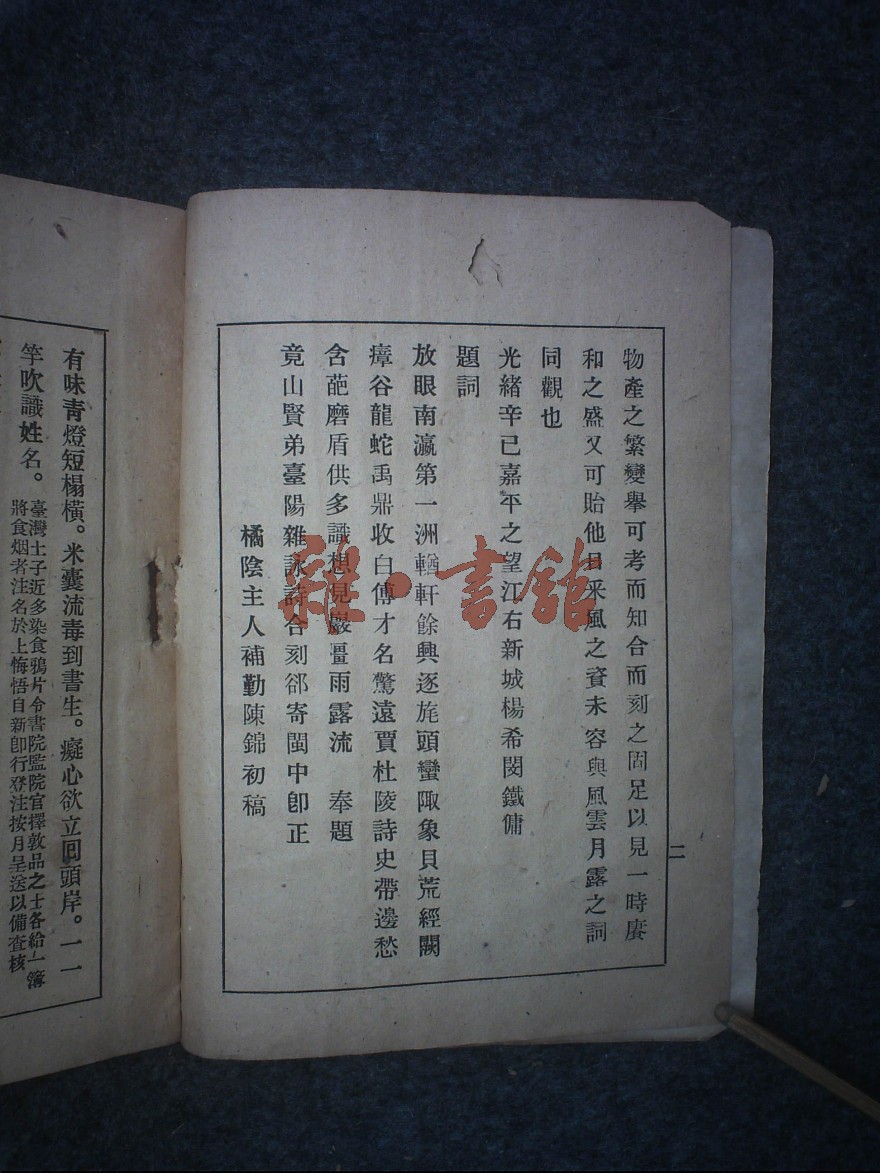 物產之繁變擧可考而知合而刻之固足以見一時賡
和之盛又可貽他日采風之資未容與風雲月露之詞
同觀也
光緒辛巳嘉平之望江右新城楊希閔鐵傭
題詞
放眼南瀛第一洲輶軒餘興逐旄頭蠻陬象貝荒經闕
瘴谷龍蛇禹鼎收白傅才名驚遠賈杜陵詩史帶邊愁
含葩磨盾供多識想見巖疆雨露流　奉題
竟山賢弟臺陽雜詠詩合刻郤寄閩中卽正
橘陰主人補勤陳錦初稿
二
有味青燈短榻橫。米囊流毒到書生。癡心欲立回頭岸。一一
竿吹識姓名。
臺灣士子近多染食鴉片令書院監院官擇敦品之士各給一簿
將食烟者注名於上悔悟自新卽行登注按月呈送以備查核
雜·書館